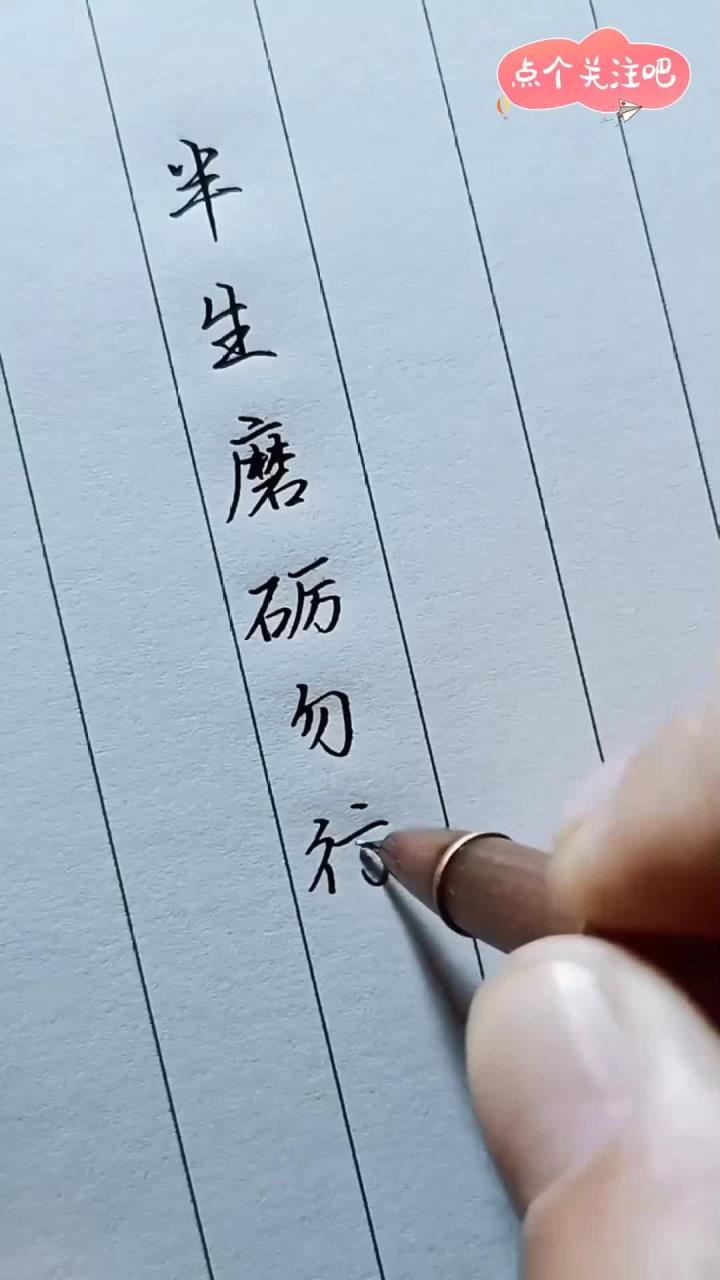 点个关注吧
半生磨砺勿行